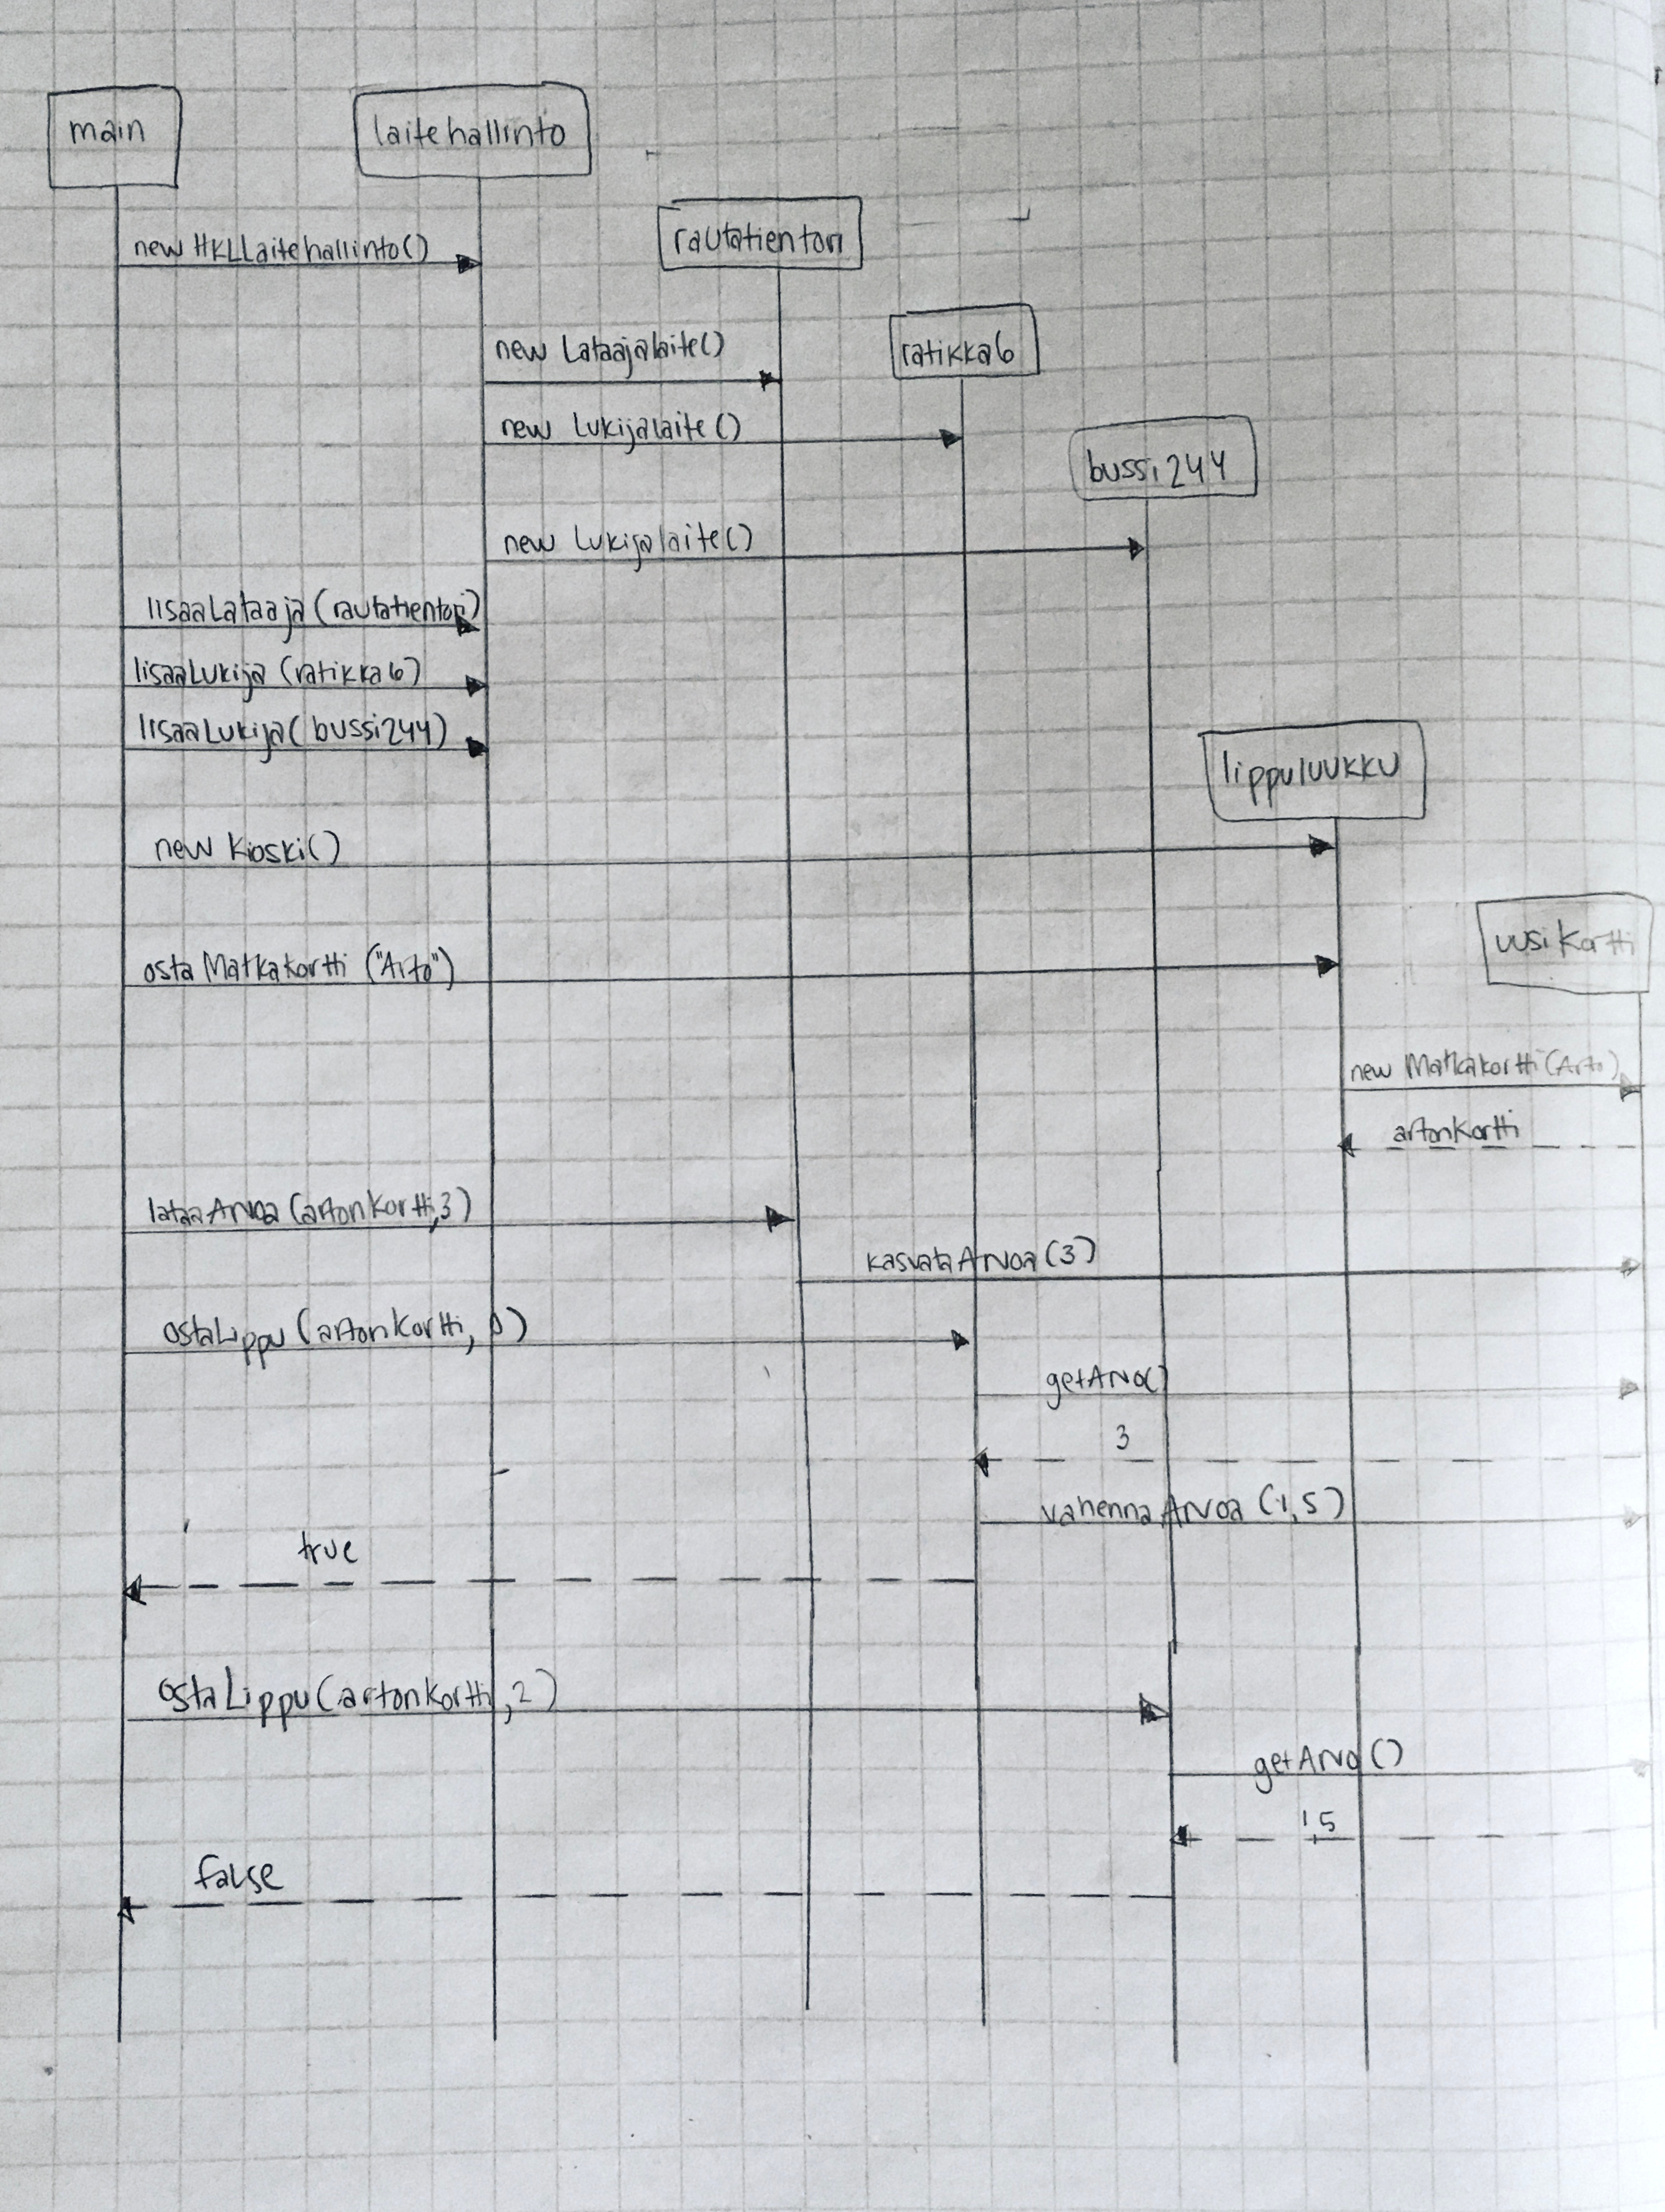 main
laitehallinto
rautatientori
new HKLLaitehallinto()
new Lataajalaite()
ratikka6
new Lukijalaite()
bussi244
new Lukijalaite()
lisaaLataaja(rautatientori)
lisaaLukija(ratikka6)
lisaaLukija(bussi244)
lippuluukku
new Kioski()
uusiKortti
ostaMatkakortti("Arto")
new Matkakortti(Arto)
artonKortti
lataaArvoa(artonKortti,3)
kasvataArvoa(3)
ostaLippu(artonKortti, 0)
getArvo()
3
vahennaArvoa(1,5)
true
ostaLippu(artonKortti,2)
getArvo()
1,5
false